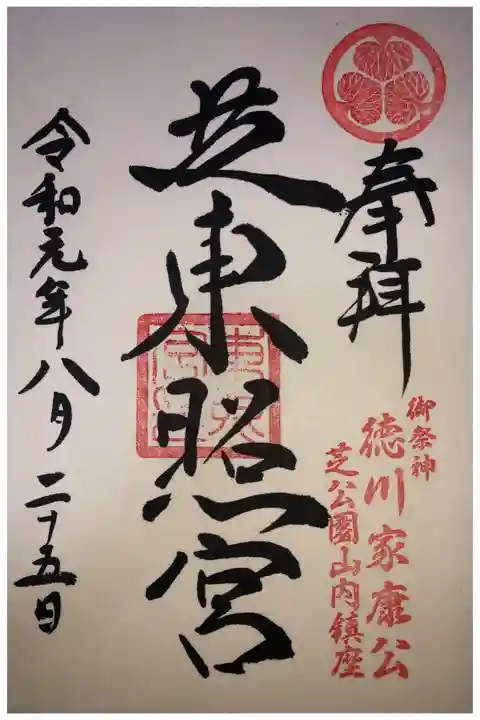 奉拜
御祭神
徳川家康公
芝公園山内鎮座
芝東照宮
令和元年八月二十五日